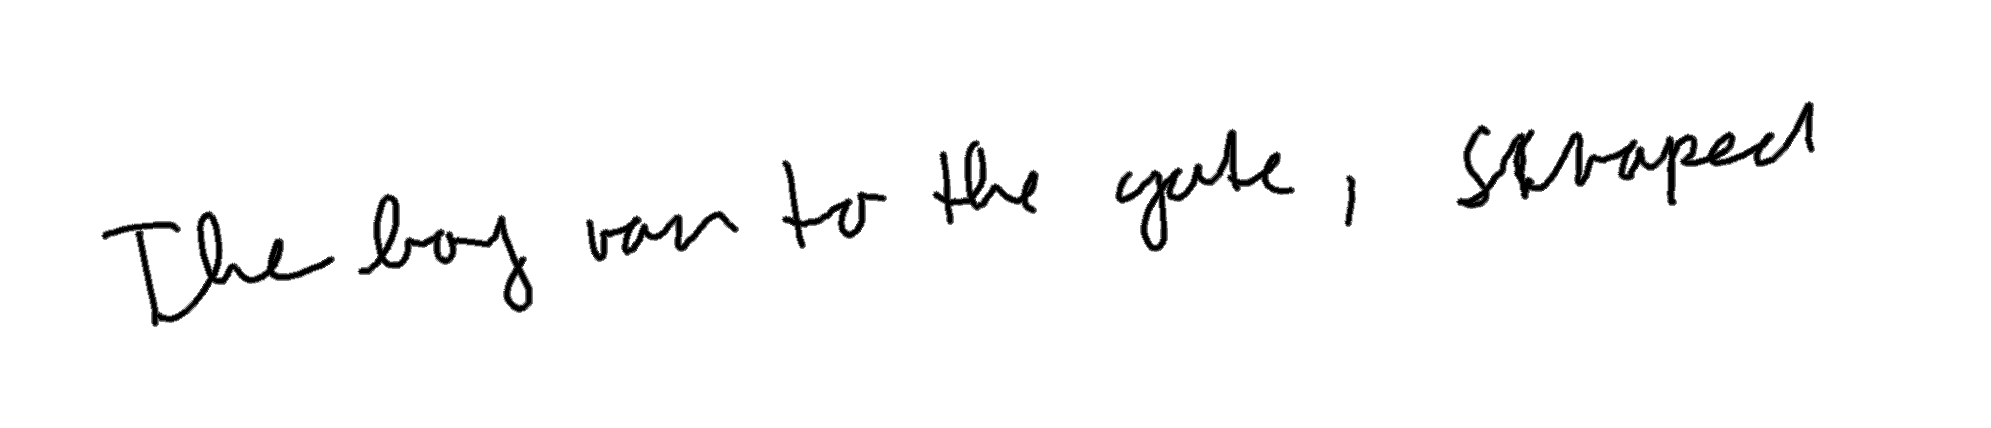 The boy ran to the gate, scraped